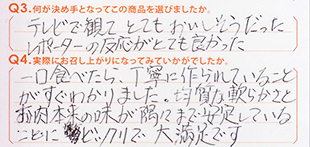 Q3.何が決め手となってこの商品を選びましたか。
テレビで観て とてもおいしそうだった
レポーターの反応がとても良かった
Q4.実際にお召し上がりになってみていかがでしたか。
一口食べたら、丁寧に作られていること
がすぐわかりました。均質な軟らかさと
お肉本来の味が隅々まで安定している
ことに ビックリで 大満足です